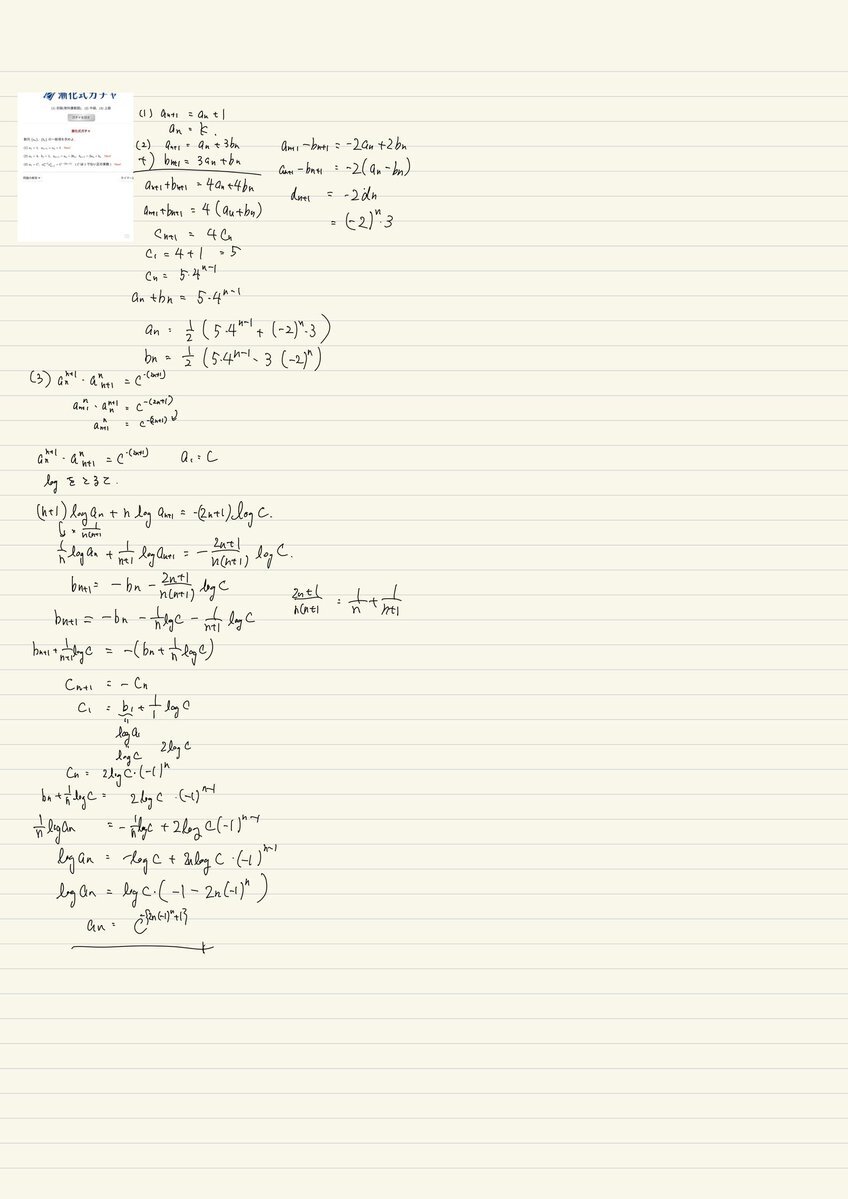 漸化式ガチャ
漸化式ガチャ
(1) a_{n+1} = a_n + 1
a_n = k.
(2) a_{n+1} = a_n + 3b_n
+) b_{n+1} = 3a_n + b_n
a_{n+1} + b_{n+1} = 4a_n + 4b_n
a_{n+1} + b_{n+1} = 4(a_n + b_n)
C_{n+1} = 4C_n
C_1 = 4 + 1 = 5
C_n = 5・4^{n-1}
a_n + b_n = 5・4^{n-1}
a_{n+1} - b_{n+1} = -2a_n + 2b_n
a_{n+1} - b_{n+1} = -2(a_n - b_n)
d_{n+1} = -2d_n
= (-2)^n・3
a_n = 1/2 (5・4^{n-1} + (-2)^n・3)
b_n = 1/2 (5・4^{n-1} - 3 (-2)^n)
(3) a_n^{n+1}・a_{n+1}^n = C^{-(2n+1)}
a_{n+1}^n・a_n^{n+1} = C^{-(2n+1)}
a_{n+1}^n = C^{-(2n+1)}
a_n^{n+1}・a_{n+1}^n = C^{-(2n+1)} a_1 = C
log をとると.
(n+1) log a_n + n log a_{n+1} = -(2n+1) log C.
× 1/n(n+1)
1/n log a_n + 1/(n+1) log a_{n+1} = - (2n+1)/(n(n+1)) log C.
b_{n+1} = -b_n - (2n+1)/(n(n+1)) log C
(2n+1)/(n(n+1) = 1/n + 1/(n+1)
b_{n+1} = -b_n - 1/n log C - 1/(n+1) log C
b_{n+1} + 1/(n+1) log C = -(b_n + 1/n log C)
C_{n+1} = -C_n
C_1 = b_1 + 1/1 log C
log a_1
log C 2 log C
C_n = 2 log C・(-1)^n
b_n + 1/n log C = 2 log C・(-1)^{n-1}
1/n log a_n = -1/n log C + 2 log C (-1)^{n-1}
log a_n = -log C + 2n log C・(-1)^{n-1}
log a_n = log C・(-1 - 2n(-1)^n)
a_n = C^{-{2n(-1)^n+1}}